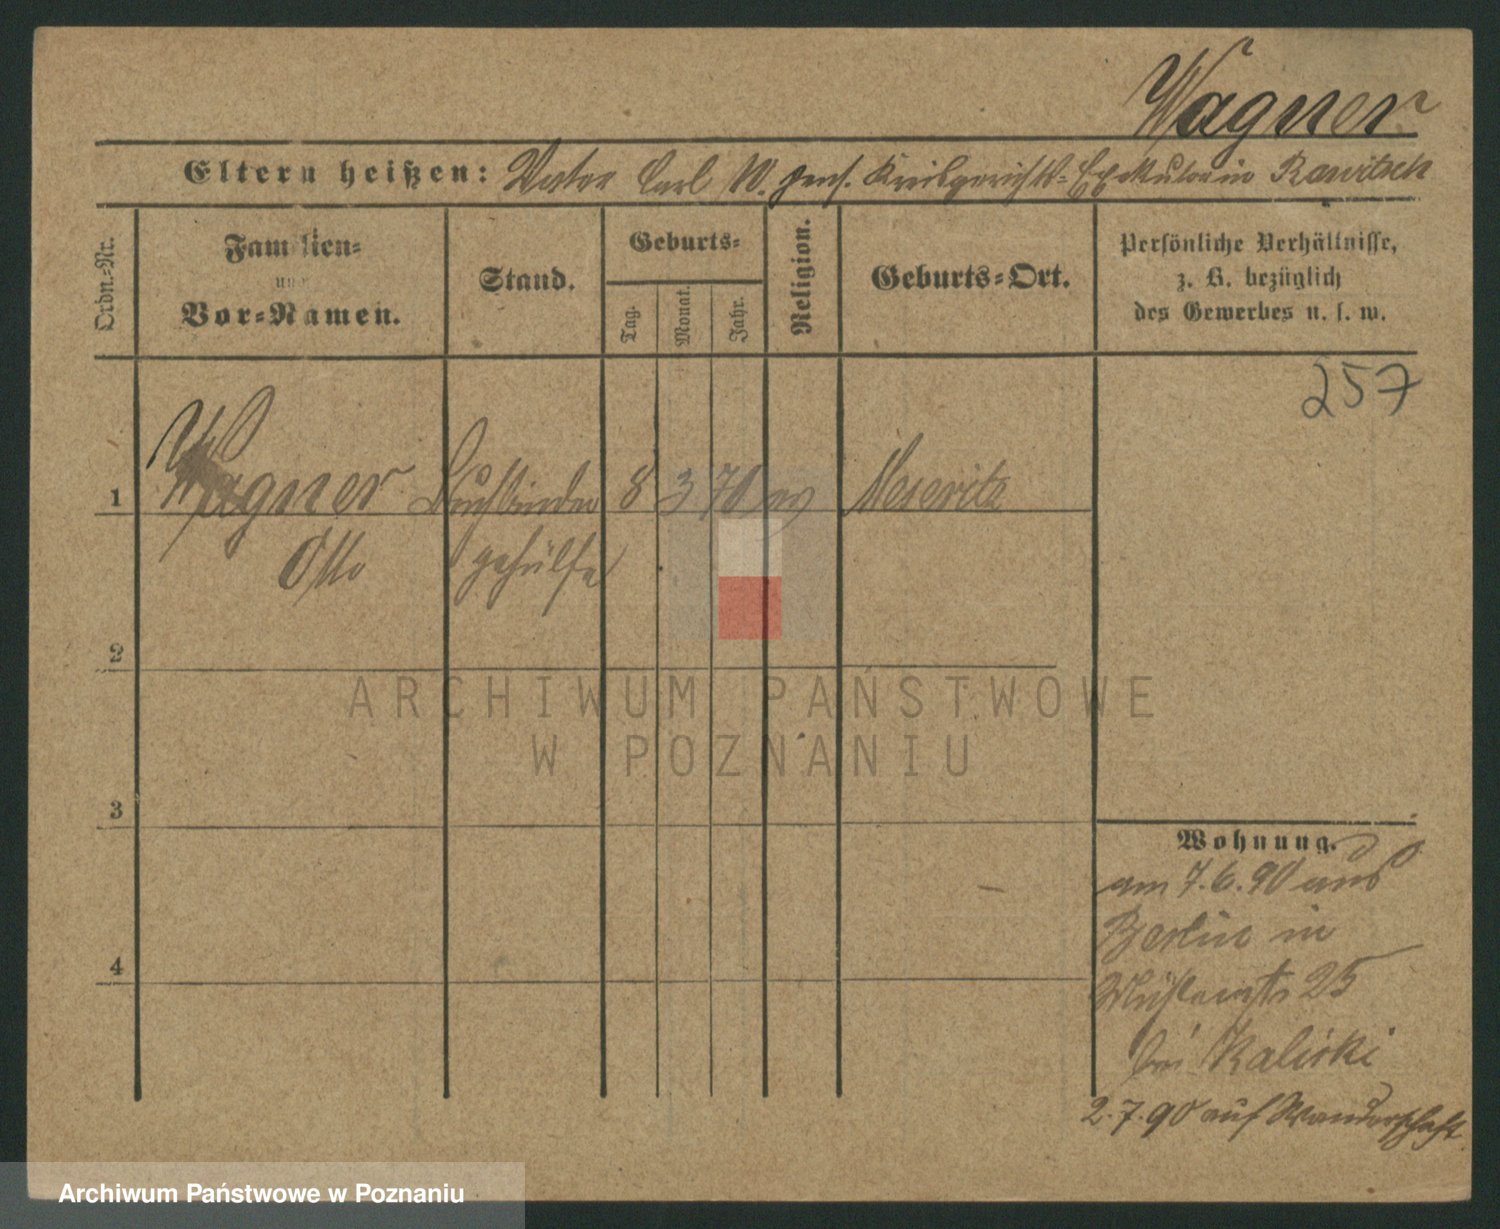 Wagner
Eltern heißen: Vater Carl W. pens. Kreisgerichts-Exekutor in Rawitsch
Ordn.-Nr.
Familien-
und
Vor-Namen.
Stand.
Geburts-
Tag.
Monat.
Jahr.
Religion.
Geburts-Ort.
Persönliche Verhältnisse,
z. B. bezüglich
des Gewerbes u. s. w.
257
1 Wagner Buchbinder 8 3 70 ev Meseritz
Otto gehülfe
2
ARCHIWUM PAŃSTWOWE
W POZNANIU
3
Wohnung.
am 7.6.90 aus
Berlin in
25
4
bei Kalicki
2.7.90 auf Wanderschaft
Archiwum Państwowe w Poznaniu